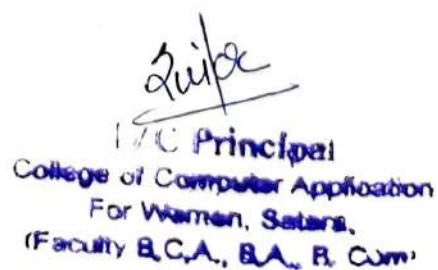 I/C Principal
College of Computer Application
For Women, Satara.
(Faculty B.C.A., B.A., B. Com)